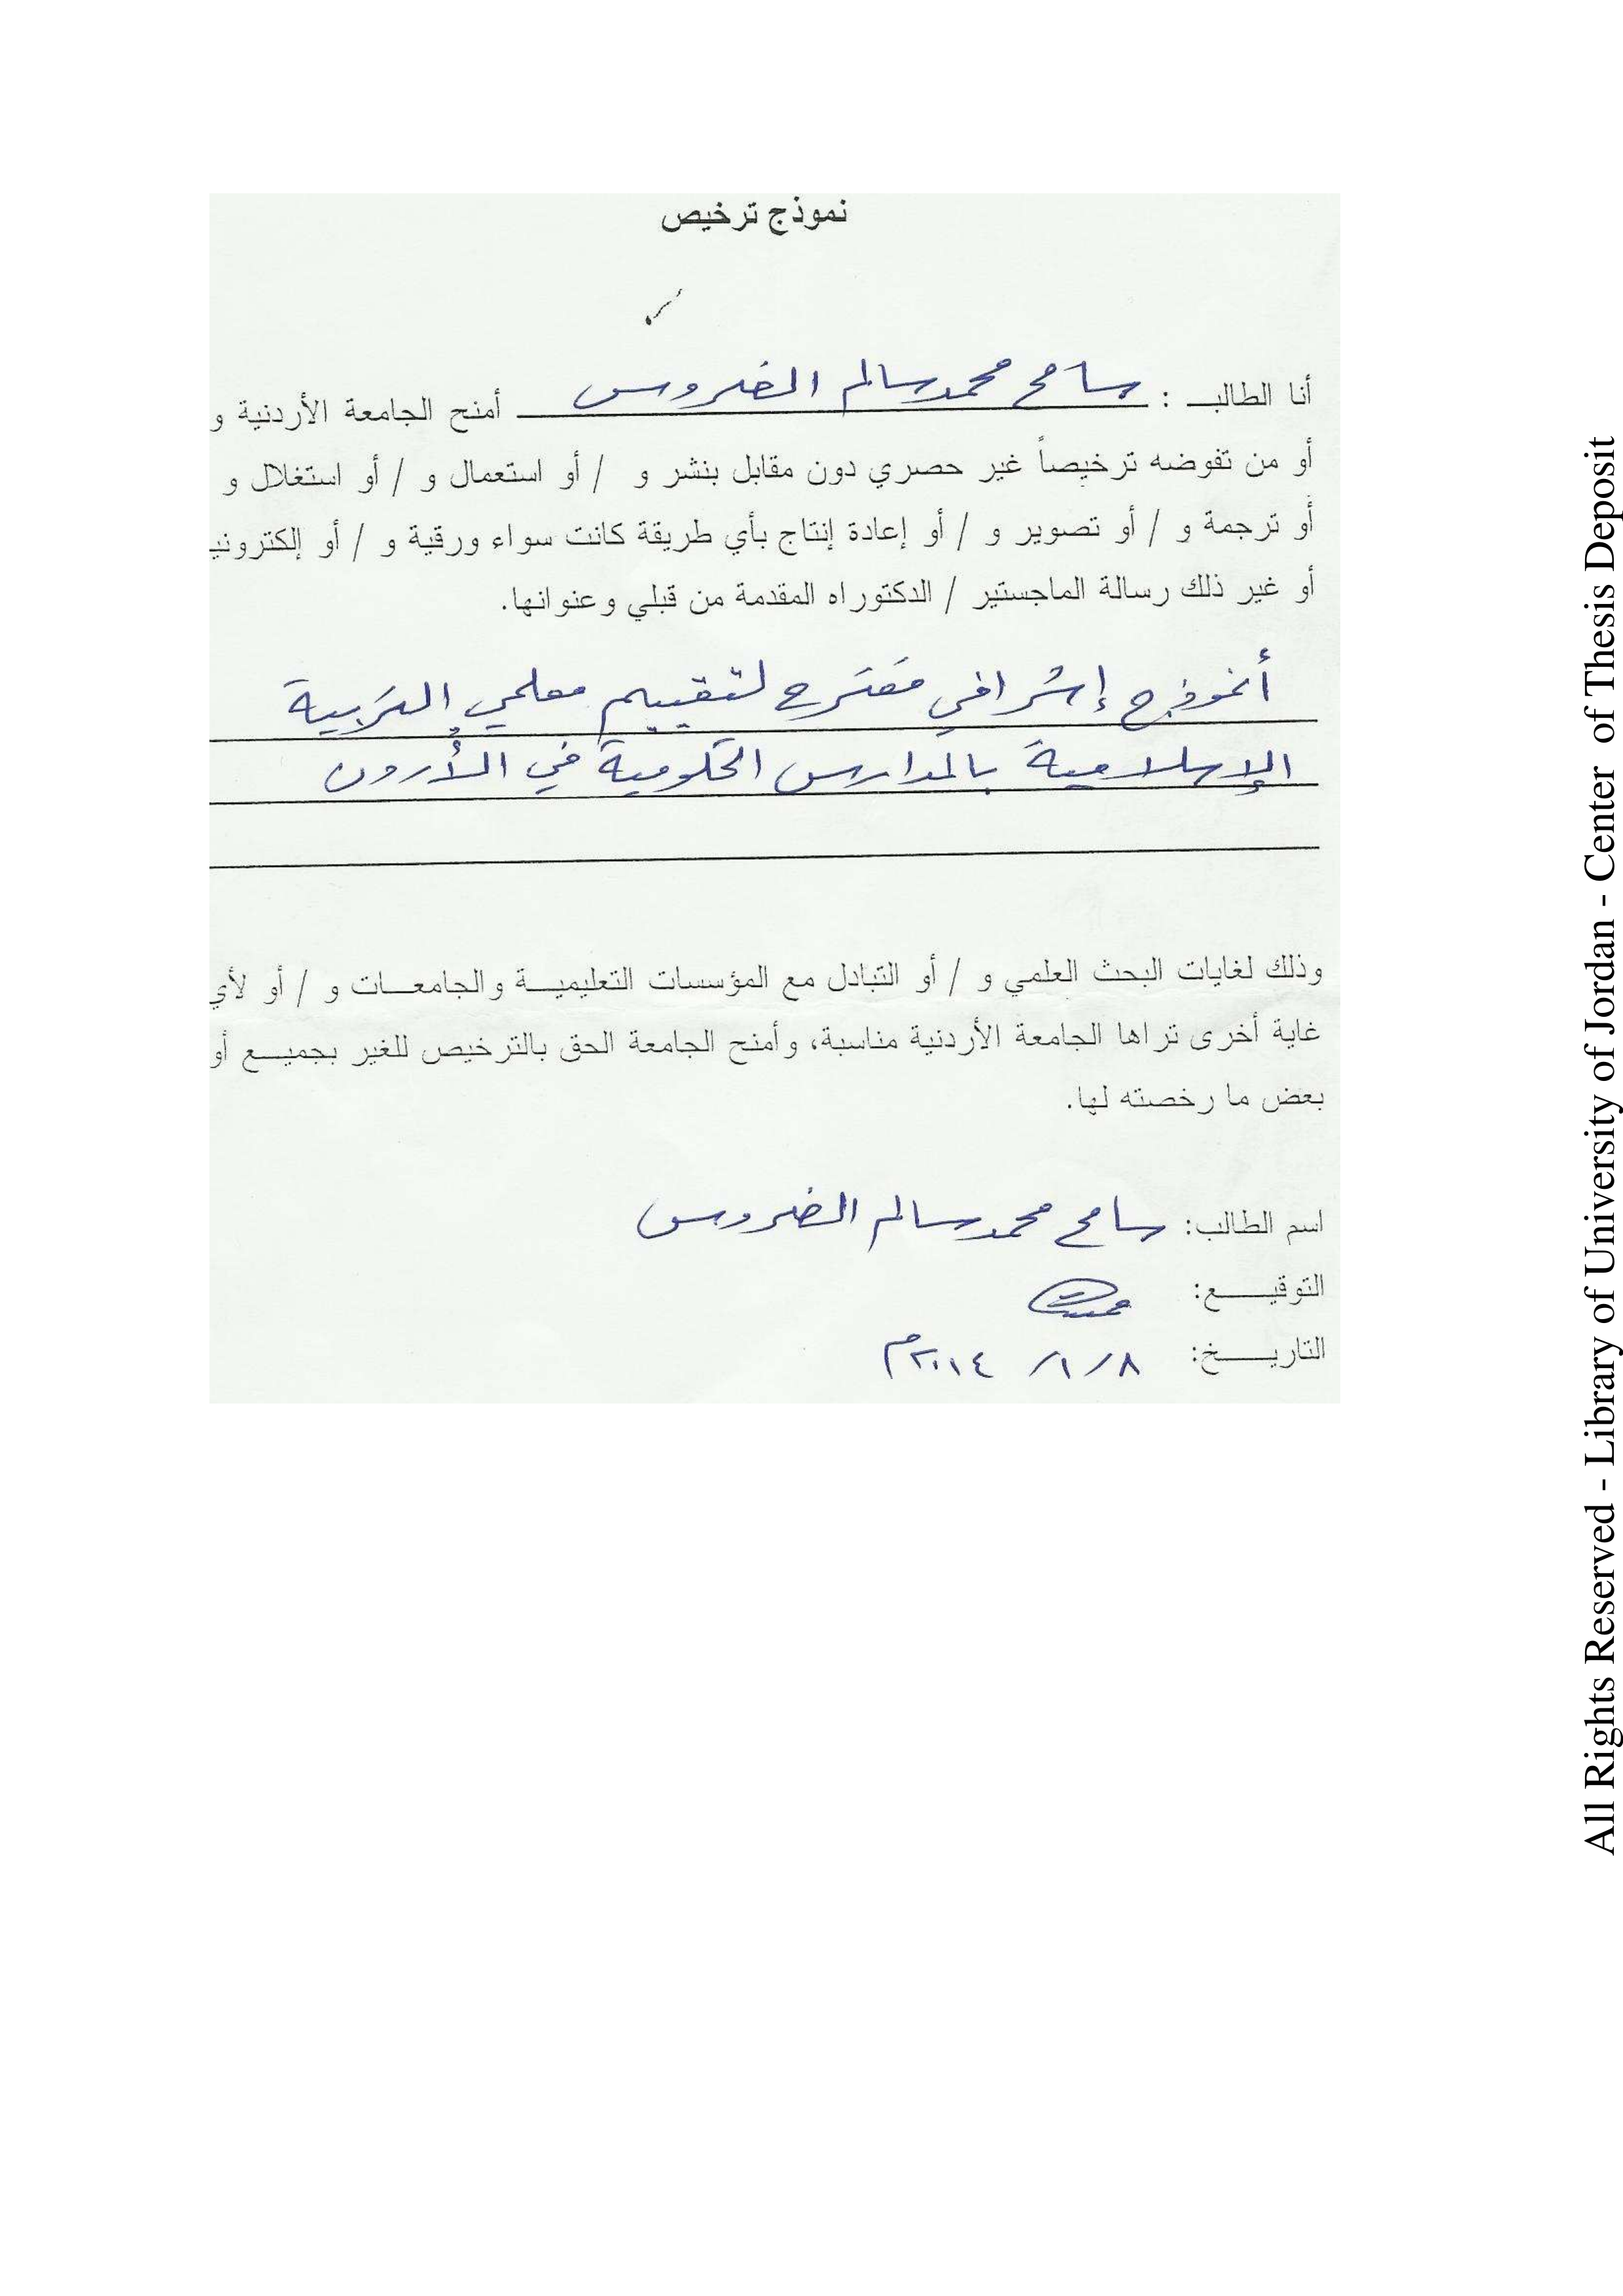 نموذج ترخيص
أنا الطالب : سامح محمد سالم الضروس أمنح الجامعة الأردنية و
أو من تفوضه ترخيصاً غير حصري دون مقابل بنشر و / أو استعمال و / أو استغلال و
أو ترجمة و / أو تصوير و / أو إعادة إنتاج بأي طريقة كانت سواء ورقية و / أو إلكترونيـ
أو غير ذلك رسالة الماجستير / الدكتوراه المقدمة من قبلي وعنوانها.
أنموذج إشرافي مقترح لتقييم معلمي التربية
الإسلامية بالمدارس الحكومية في الأردن
وذلك لغايات البحث العلمي و / أو التبادل مع المؤسسات التعليميـــة والجامعـــات و / أو لأي
غاية أخرى تراها الجامعة الأردنية مناسبة، وأمنح الجامعة الحق بالترخيص للغير بجميـــع أو
بعض ما رخصته لها.
اسم الطالب: سامح محمد سالم الضروس
التوقيـــــع:
التاريـــــخ: ٨/ ١/ ٢٠١٤م
All Rights Reserved - Library of University of Jordan - Center of Thesis Deposit